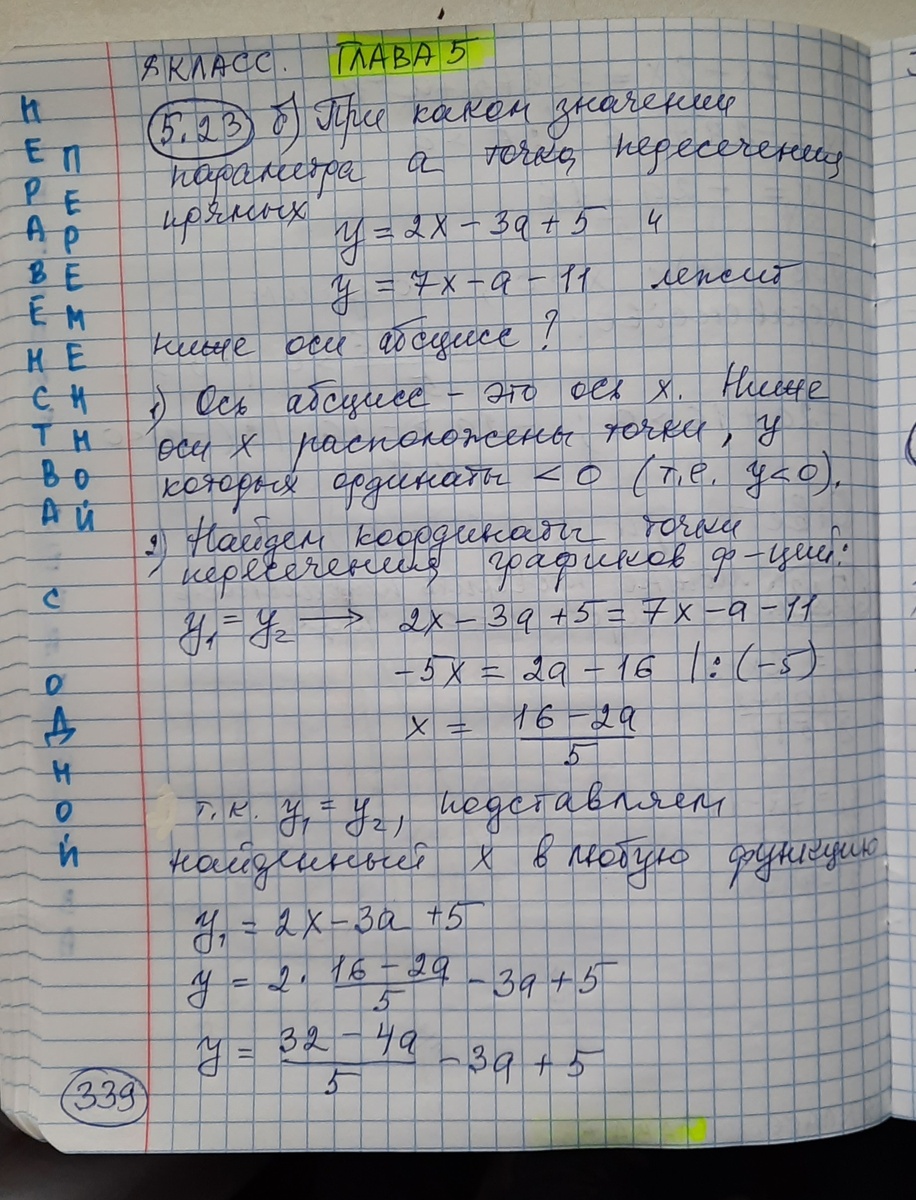 8 КЛАСС. ГЛАВА 5
НЕРАВЕНСТВА С ОДНОЙ
ПЕРЕМЕННОЙ
5.23 б) При каком значении
параметра a точка пересечения
прямых
y = 2x - 3a + 5 и
y = 7x - a - 11 лежит
ниже оси абсцисс?
1) Ось абсцисс - это ось x. Ниже
оси x расположены точки, у
которых ординаты < 0 (т.е. y<0).
2) Найдем координаты точки
пересечения графиков ф-ций:
y₁ = y₂ → 2x - 3a + 5 = 7x - a - 11
-5x = 2a - 16 | : (-5)
x = (16 - 2a)/5
т.к. y₁ = y₂, подставляем
найденный x в любую функцию
y₁ = 2x - 3a + 5
y = 2 · (16 - 2a)/5 - 3a + 5
y = (32 - 4a)/5 - 3a + 5
339